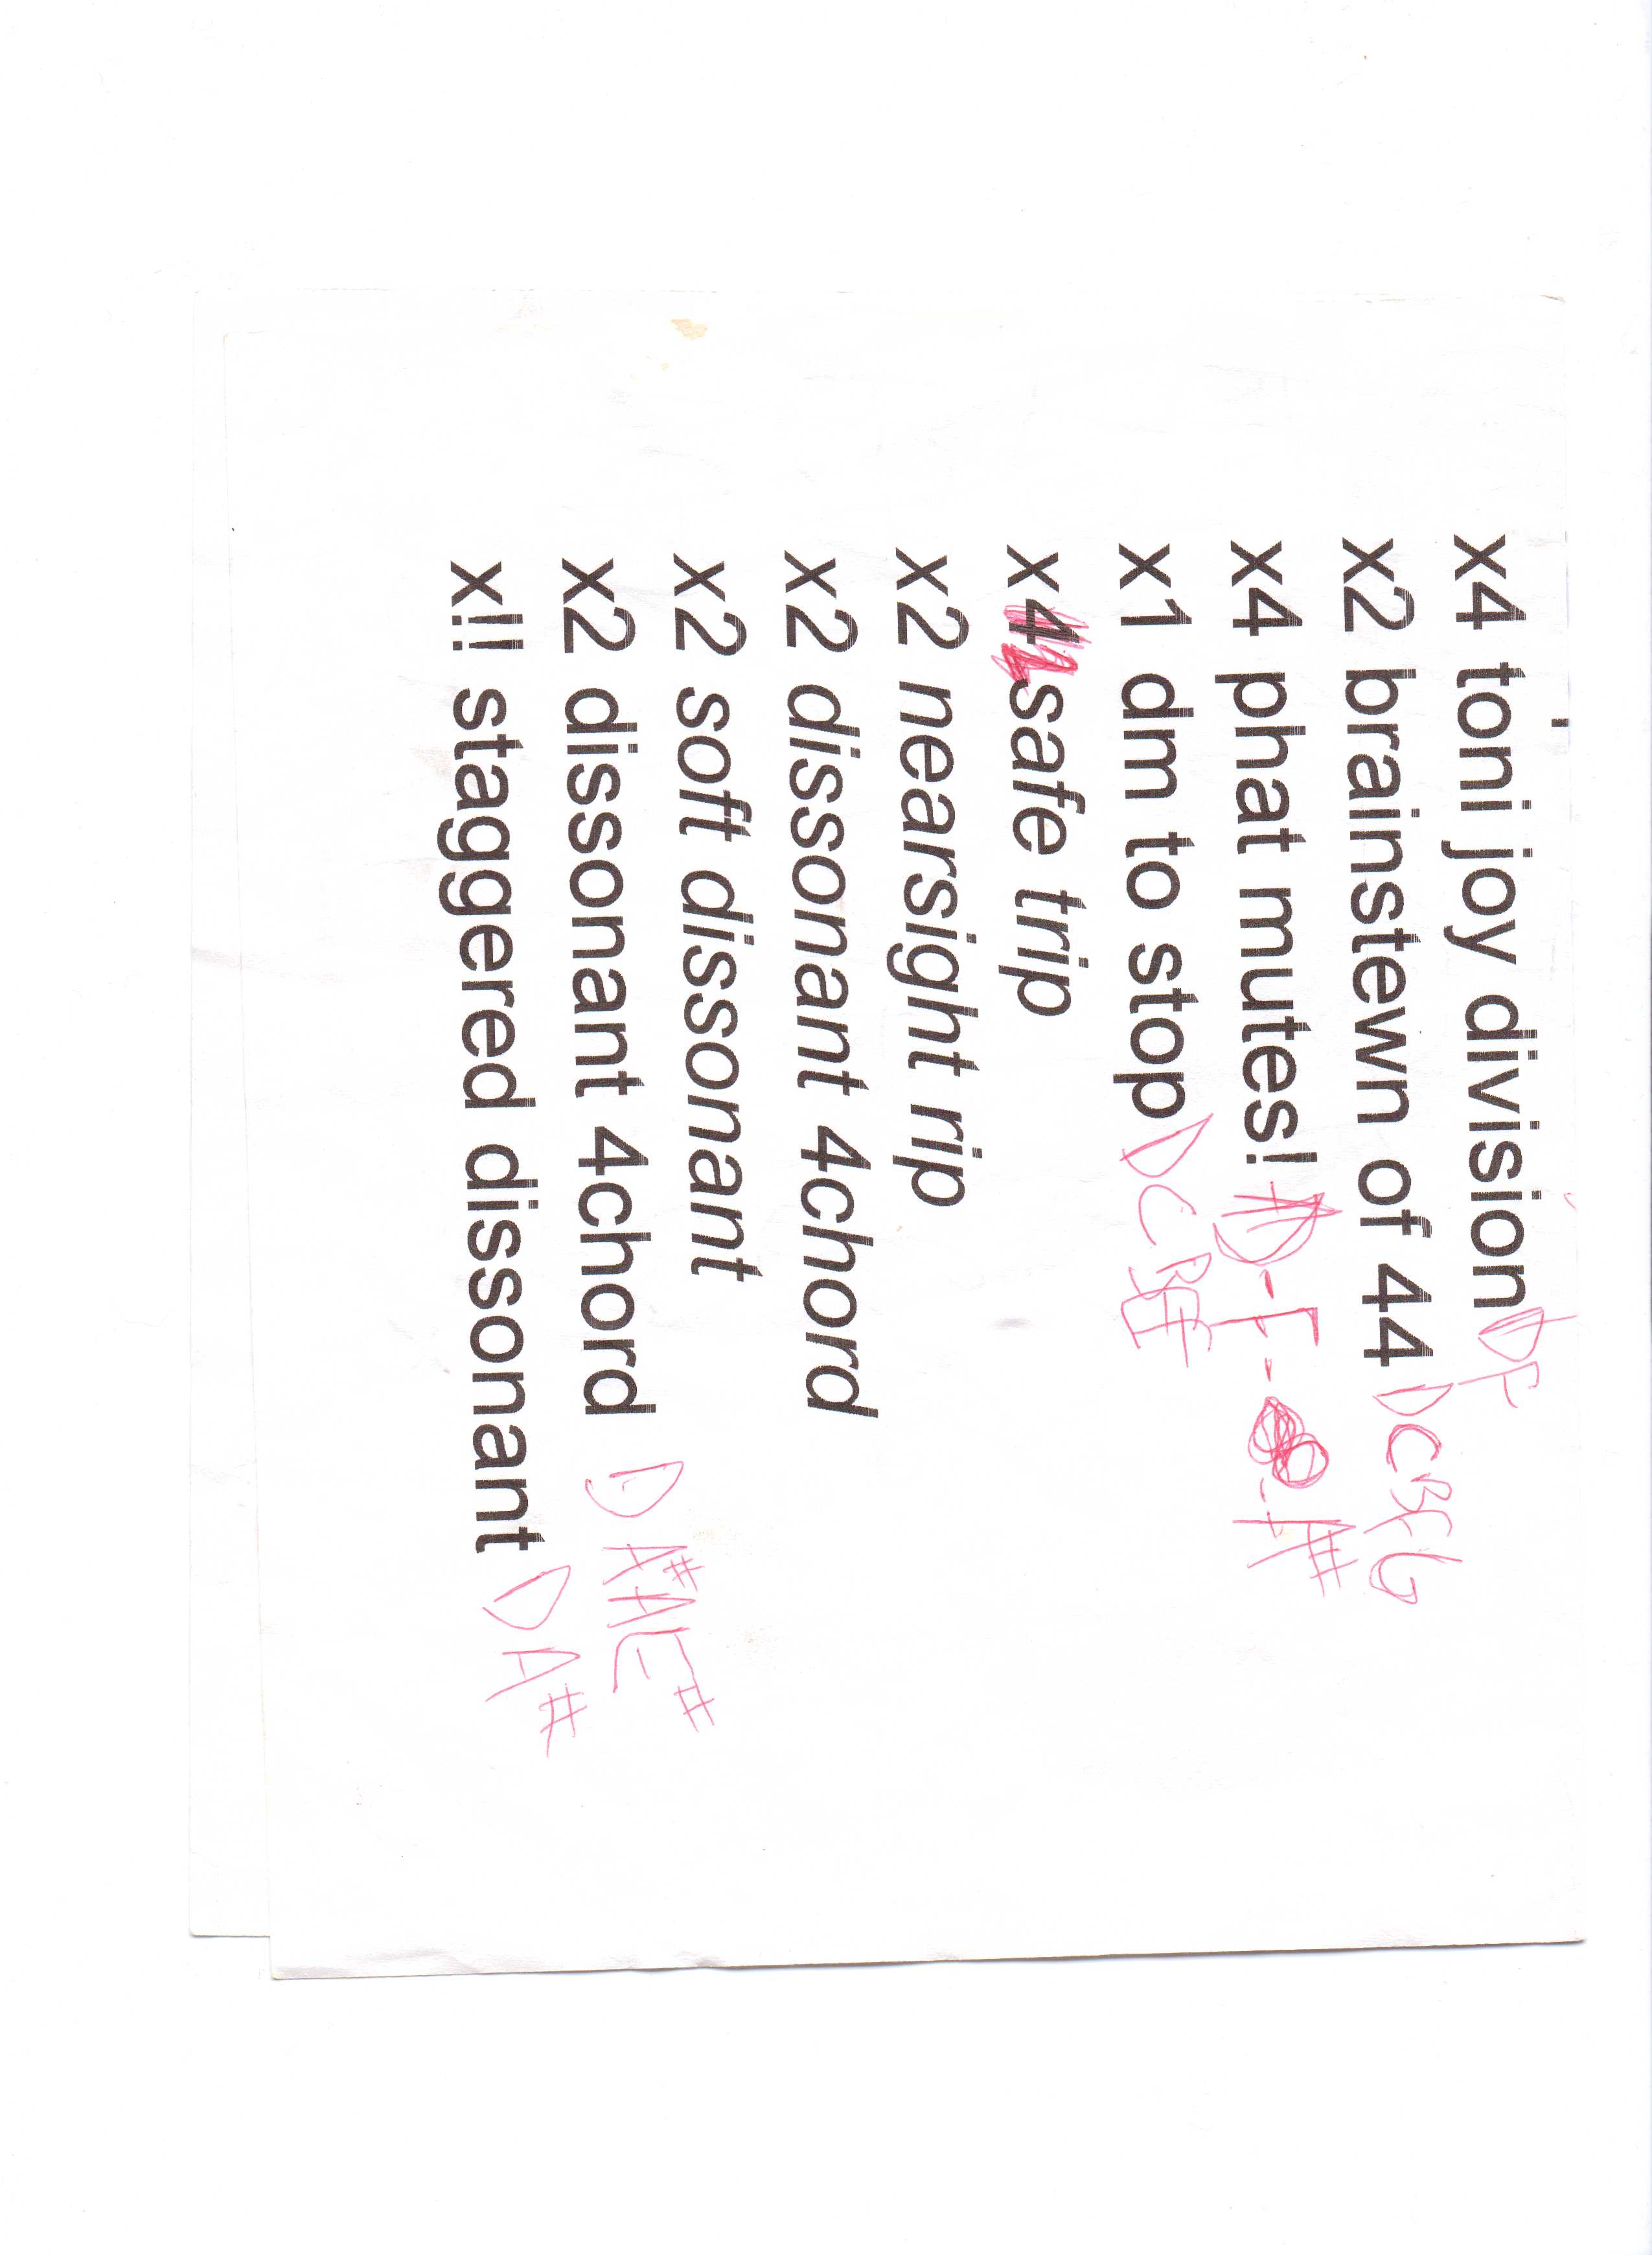 x4 toni joy division DF
x2 brainstewn of 44 DCBFG
x4 phat mutes! D-F-A#
x1 dm to stop DCB
x2 safe trip
x2 nearsight rip
x2 dissonant 4chord
x2 soft dissonant
x2 dissonant 4chord D A# A
x!! staggered dissonant D A#